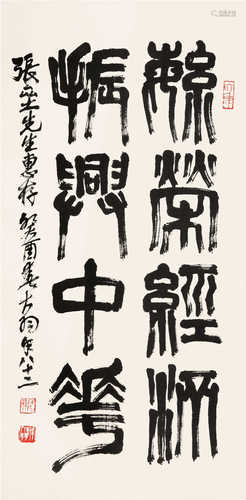 繁榮經濟
振興中華
張 先生惠存 癸酉春大羽年八十二